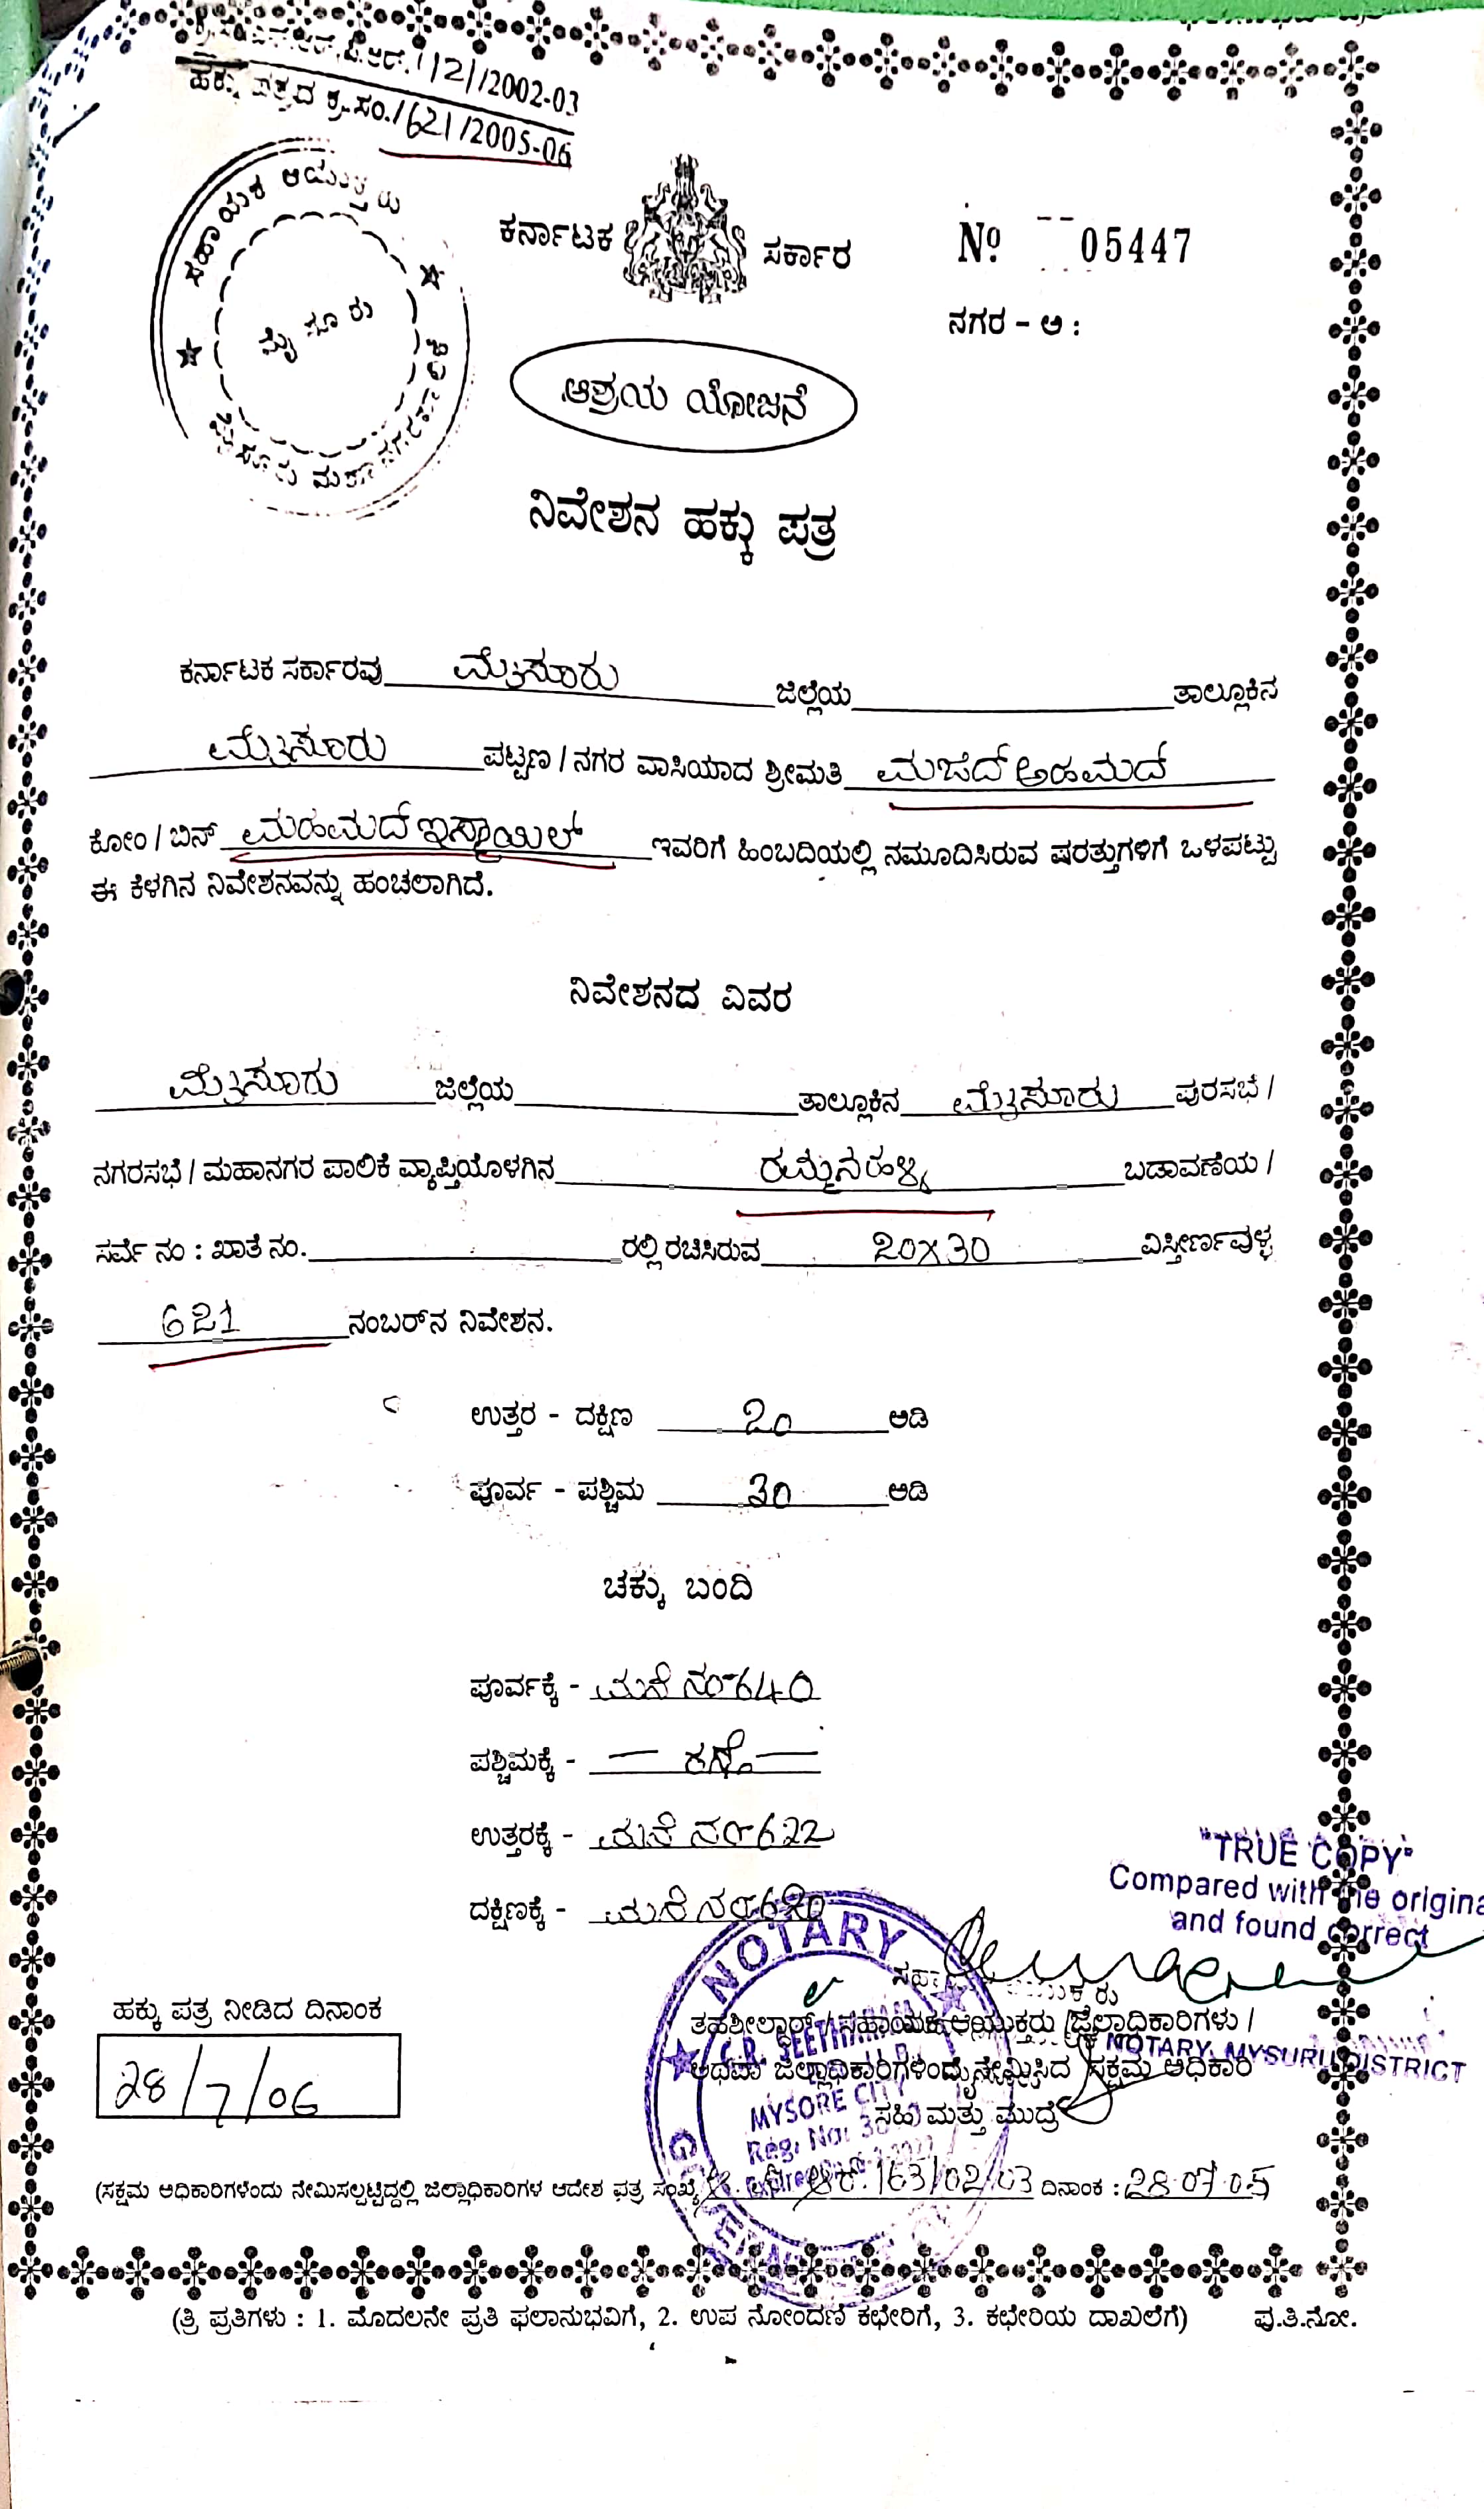 ಆರ್.1/21/2002-03
ಹಕ್ಕು ಪತ್ರದ ಕ್ರ.ಸಂ./621/2005-06
ಸಹಾಯಕ ಆಯುಕ್ತರು
ಮೈಸೂರು
ಮೈಸೂರು ಮಹಾನಗರಪಾಲಿಕೆ
ಕರ್ನಾಟಕ ಸರ್ಕಾರ
No 05447
ನಗರ - ಅ :
ಆಶ್ರಯ ಯೋಜನೆ
ನಿವೇಶನ ಹಕ್ಕು ಪತ್ರ
ಕರ್ನಾಟಕ ಸರ್ಕಾರವು ಮೈಸೂರು ಜಿಲ್ಲೆಯ ತಾಲ್ಲೂಕಿನ
ಮೈಸೂರು ಪಟ್ಟಣ / ನಗರ ವಾಸಿಯಾದ ಶ್ರೀಮತಿ ಮಜೆದ್ ಅಹಮದ್
ಕೋಂ / ಬಿನ್ ಮಹಮದ್ ಇಸ್ಮಾಯಿಲ್ ಇವರಿಗೆ ಹಿಂಬದಿಯಲ್ಲಿ ನಮೂದಿಸಿರುವ ಷರತ್ತುಗಳಿಗೆ ಒಳಪಟ್ಟು
ಈ ಕೆಳಗಿನ ನಿವೇಶನವನ್ನು ಹಂಚಲಾಗಿದೆ.
ನಿವೇಶನದ ವಿವರ
ಮೈಸೂರು ಜಿಲ್ಲೆಯ ತಾಲ್ಲೂಕಿನ ಮೈಸೂರು ಪುರಸಭೆ /
ನಗರಸಭೆ / ಮಹಾನಗರ ಪಾಲಿಕೆ ವ್ಯಾಪ್ತಿಯೊಳಗಿನ ರಮ್ಮನಹಳ್ಳಿ ಬಡಾವಣೆಯ /
ಸರ್ವೆ ನಂ : ಖಾತೆ ನಂ. ರಲ್ಲಿ ರಚಿಸಿರುವ 20x30 ವಿಸ್ತೀರ್ಣವುಳ್ಳ
621 ನಂಬರ್‌ನ ನಿವೇಶನ.
ಉತ್ತರ - ದಕ್ಷಿಣ 20 ಅಡಿ
ಪೂರ್ವ - ಪಶ್ಚಿಮ 30 ಅಡಿ
ಚಕ್ಕು ಬಂದಿ
ಪೂರ್ವಕ್ಕೆ - ಮನೆ ನಂ-640
ಪಶ್ಚಿಮಕ್ಕೆ - — ರಸ್ತೆ —
ಉತ್ತರಕ್ಕೆ - ಮನೆ ನಂ-622
ದಕ್ಷಿಣಕ್ಕೆ - ಮನೆ ನಂ-620
"TRUE COPY"
Compared with the origina
and found correct
ಹಕ್ಕು ಪತ್ರ ನೀಡಿದ ದಿನಾಂಕ
28/7/06
ತಹಶೀಲ್ದಾರ್ / ಸಹಾಯಕ ಆಯುಕ್ತರು / ಜಿಲ್ಲಾಧಿಕಾರಿಗಳು /
NOTARY, MYSURU DISTRICT
ಅಥವಾ ಜಿಲ್ಲಾಧಿಕಾರಿಗಳಿಂದ ನೇಮಿಸಿದ ಸಕ್ಷಮ ಅಧಿಕಾರಿ
ಸಹಿ ಮತ್ತು ಮುದ್ರೆ
NOTARY
MYSORE CITY
Reg. No:
(ಸಕ್ಷಮ ಅಧಿಕಾರಿಗಳೆಂದು ನೇಮಿಸಲ್ಪಟ್ಟಿದ್ದಲ್ಲಿ ಜಿಲ್ಲಾಧಿಕಾರಿಗಳ ಆದೇಶ ಪತ್ರ ಸಂಖ್ಯೆ 163/02/03 ದಿನಾಂಕ : 28 07 05
(ತ್ರಿ ಪ್ರತಿಗಳು : 1. ಮೊದಲನೇ ಪ್ರತಿ ಫಲಾನುಭವಿಗೆ, 2. ಉಪ ನೋಂದಣಿ ಕಛೇರಿಗೆ, 3. ಕಛೇರಿಯ ದಾಖಲೆಗೆ) ಪು.ತಿ.ನೋ.